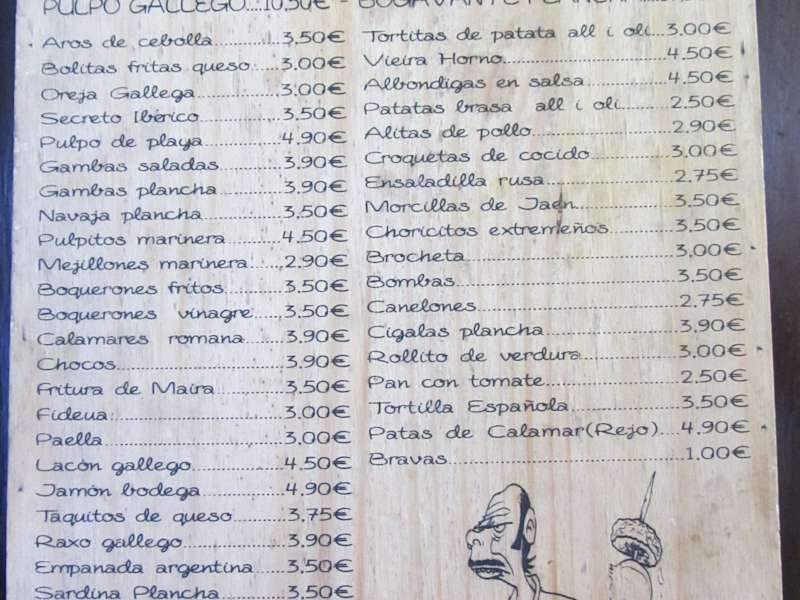 PULPO GALLEGO...10.50€ - BOGAVANTE PLANCHA
Aros de cebolla 3,50€
Bolitas fritas queso 3,00€
Oreja Gallega 3,00€
Secreto Ibérico 3,50€
Pulpo de playa 4,90€
Gambas saladas 3,90€
Gambas plancha 3,90€
Navaja plancha 3,50€
Pulpitos marinera 4,50€
Mejillones marinera 2,90€
Boquerones fritos 3,50€
Boquerones vinagre 3,50€
Calamares romana 3,90€
Chocos 3,90€
Fritura de Maira 3,50€
Fideua 3,00€
Paella 3,00€
Lacòn gallego 4,50€
Jamòn bodega 4,90€
Taquitos de queso 3,75€
Raxo gallego 3,90€
Empanada argentina 3,50€
Sardina Plancha 3,50€
Tortitas de patata all i oli 3,00€
Vieira Horno 4,50€
Albondigas en salsa 4,50€
Patatas brasa all i oli 2,50€
Alitas de pollo 2,90€
Croquetas de cocido 3,00€
Ensaladilla rusa 2,75€
Morcillas de Jaèn 3,50€
Choricitos extremeños 3,50€
Brocheta 3,00€
Bombas 3,50€
Canelones 2,75€
Cigalas plancha 3,90€
Rollito de verdura 3,00€
Pan con tomate 2,50€
Tortilla Española 3,50€
Patas de Calamar(Rejo) 4,90€
Bravas 1,00€